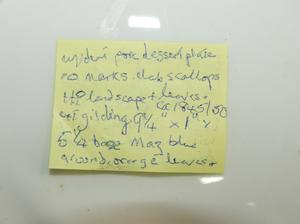 unident porc dessert plate
no marks. elab. scallops
HP landscape + leaves.
ca 1845/50
ext gilding. 9 1/4" x 1" x
5 1/4 base Maz blue
ground, orange leaves +